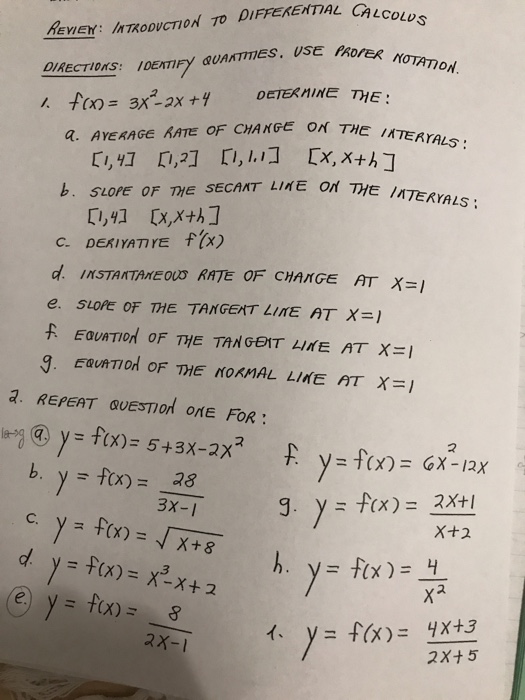 REVIEW: INTRODUCTION TO DIFFERENTIAL CALCOLUS
DIRECTIONS: IDENTIFY QUANTITIES. USE PROPER NOTATION.
1. f(x) = 3x²-2x+4 DETERMINE THE:
a. AVERAGE RATE OF CHANGE ON THE INTERVALS:
[1,4] [1,2] [1,1.1] [x,x+h]
b. SLOPE OF THE SECANT LINE ON THE INTERVALS:
[1,4] [x,x+h]
c. DERIVATIVE f'(x)
d. INSTANTANEOUS RATE OF CHANGE AT X=1
e. SLOPE OF THE TANGENT LINE AT X=1
f. EQUATION OF THE TANGENT LINE AT X=1
g. EQUATION OF THE NORMAL LINE AT X=1
2. REPEAT QUESTION ONE FOR:
a. y = f(x) = 5+3x-2x²
b. y = f(x) = 28/3x-1
c. y = f(x) = √x+8
d. y = f(x) = x³-x+2
e. y = f(x) = 8/2x-1
f. y = f(x) = 6x²-12x
g. y = f(x) = 2x+1/x+2
h. y = f(x) = 4/x²
i. y = f(x) = 4x+3/2x+5